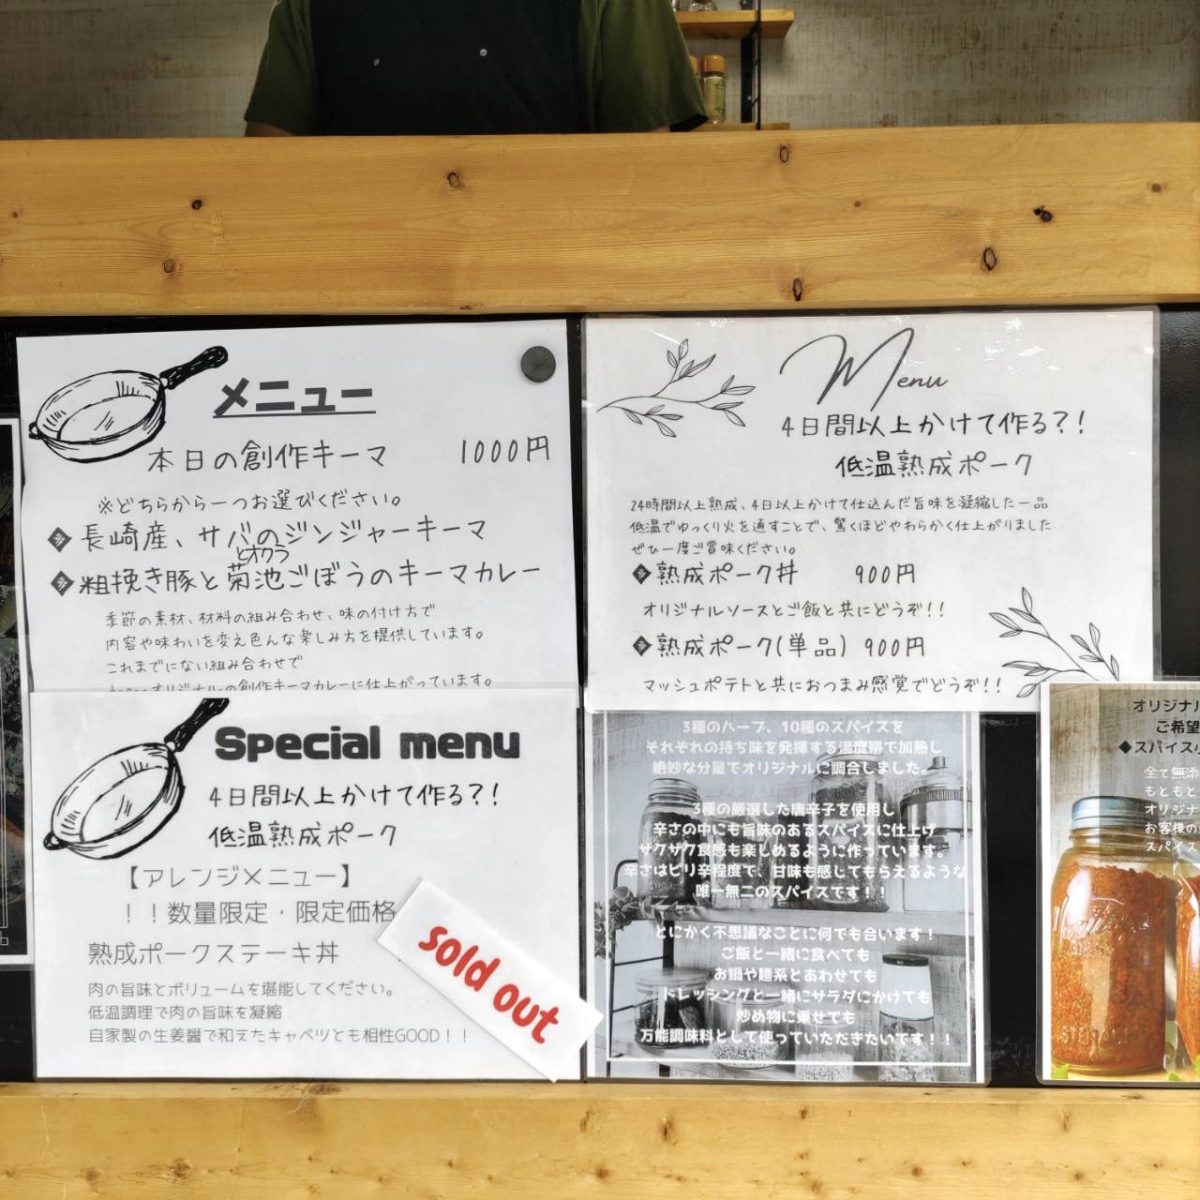 メニュー
本日の創作キーマ 1000円
※どちらから一つお選びください。
長崎産、サバのジンジャーキーマ
とオクラ
粗挽き豚と菊池ごぼうのキーマカレー
季節の素材、材料の組み合わせ、味の付け方で
内容や味わいを変え色んな楽しみ方を提供しています。
これまでにない組み合わせで
オリジナルの創作キーマカレーに仕上がっています。
Special menu
4日間以上かけて作る?!
低温熟成ポーク
【アレンジメニュー】
!!数量限定・限定価格
熟成ポークステーキ丼
sold out
肉の旨味とボリュームを堪能してください。
低温調理で肉の旨味を凝縮
自家製の生姜醤で和えたキャベツとも相性GOOD!!
Menu
4日間以上かけて作る?!
低温熟成ポーク
24時間以上熟成、4日以上かけて仕込んだ旨味を凝縮した一品
低温でゆっくり火を通すことで、驚くほどやわらかく仕上がりました
ぜひ一度ご賞味ください。
熟成ポーク丼 900円
オリジナルソースとご飯と共にどうぞ!!
熟成ポーク(単品) 900円
マッシュポテトと共におつまみ感覚でどうぞ!!
3種のハーブ、10種のスパイスを
それぞれの持ち味を発揮する温度帯で加熱し
絶妙な分量でオリジナルに調合しました。
3種の厳選した唐辛子を使用し
辛さの中にも旨味のあるスパイスに仕上げ
ザクザク食感も楽しめるように作っています。
辛さはピリ辛程度で、甘味も感じてもらえるような
唯一無二のスパイスです!!
とにかく不思議なことに何でも合います!
ご飯と一緒に食べても
お鍋や麺系とあわせても
ドレッシングと一緒にサラダにかけても
炒め物に乗せても
万能調味料として使っていただきたいです!!
オリジナル
ご希望
◆スパイス
全て無添
もともと
オリジナ
お客様の
スパイス